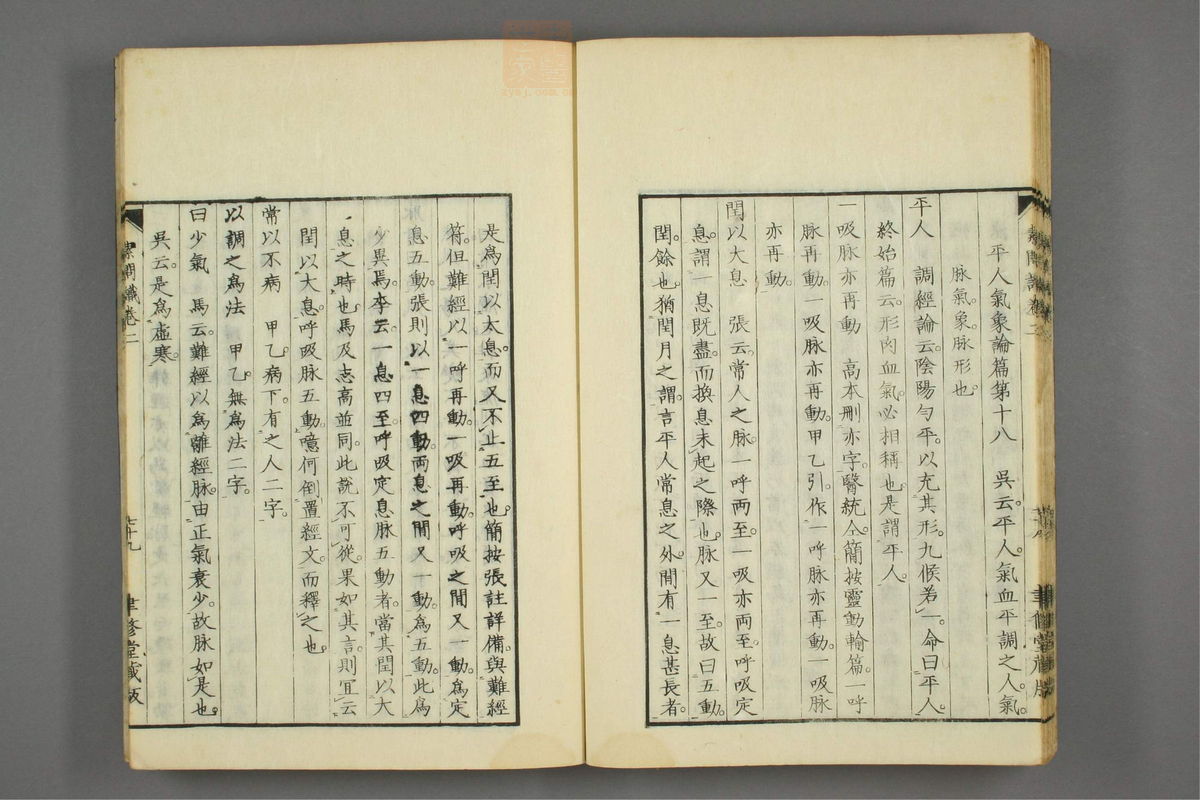 平人氣象論篇第十八　吳云。平人。氣血平調之人。氣。
脈氣。象。脈形也。
平人　調經論云。陰陽勻平。以充其形。九候若一。命曰平人。
終始篇云。形肉血氣。必相稱也。是謂平人。
一吸脈亦再動　高本刪亦字。醫統仝。簡按靈動輸篇。一呼
脈再動。一吸脈亦再動。甲乙引。作一呼脈亦再動。一吸脈
亦再動。
閏以大息　張云。常人之脈。一呼兩至。一吸亦兩至。呼吸定
息。謂一息既盡。而換息未起之際也。脈又一至。故曰五動。
閏餘也。猶閏月之謂。言平人常息之外。間有一息甚長者。
是爲閏以太息。而又不止五至也。簡按張註詳備。與難經
符。但難經以一呼再動。一吸再動。呼吸之間又一動。爲定
息五動。張則以一息四動。兩息之間又一動。爲五動。此爲
少異焉。李云。一息四至。呼吸定息脈五動者。當其閏以大
息之時也。馬及志高並同。此說不可從。果如其言。則宜云
閏以大息。呼吸脈五動。噫何倒置經文。而釋之也。
常以不病　甲乙病下。有之人二字。
以調之爲法　甲乙。無爲法二字。
曰少氣　馬云。難經以爲離經脈。由正氣衰少。故脈如是也。
吳云。是爲虛寒。
素問識卷二
七十九
聿修堂藏版